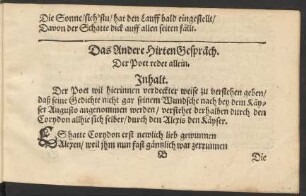 Die Sonne/sich stu/hat den Lauff bald eingestellt/
Davon der Schatte dick auff allen seiten fällt.
Das Andere Hirten Gespräch.
Der Poet redet allein.
Inhalt.
Der Poet wil hierinnen verdeckter weise zu verstehen geben/
daß seine Gedichte nicht gar seinem Wundsche nach bey dem Käy-
ser Augusto angenommen werden/ verstehet derhalben durch den
Corydon allhie sich selber/ durch den Alexis den Käyser.
ES hatte Corydon erst newlich lieb gewunnen
Alexen/ weil jhm nun fast gäntzlich war zerrunnen
Die